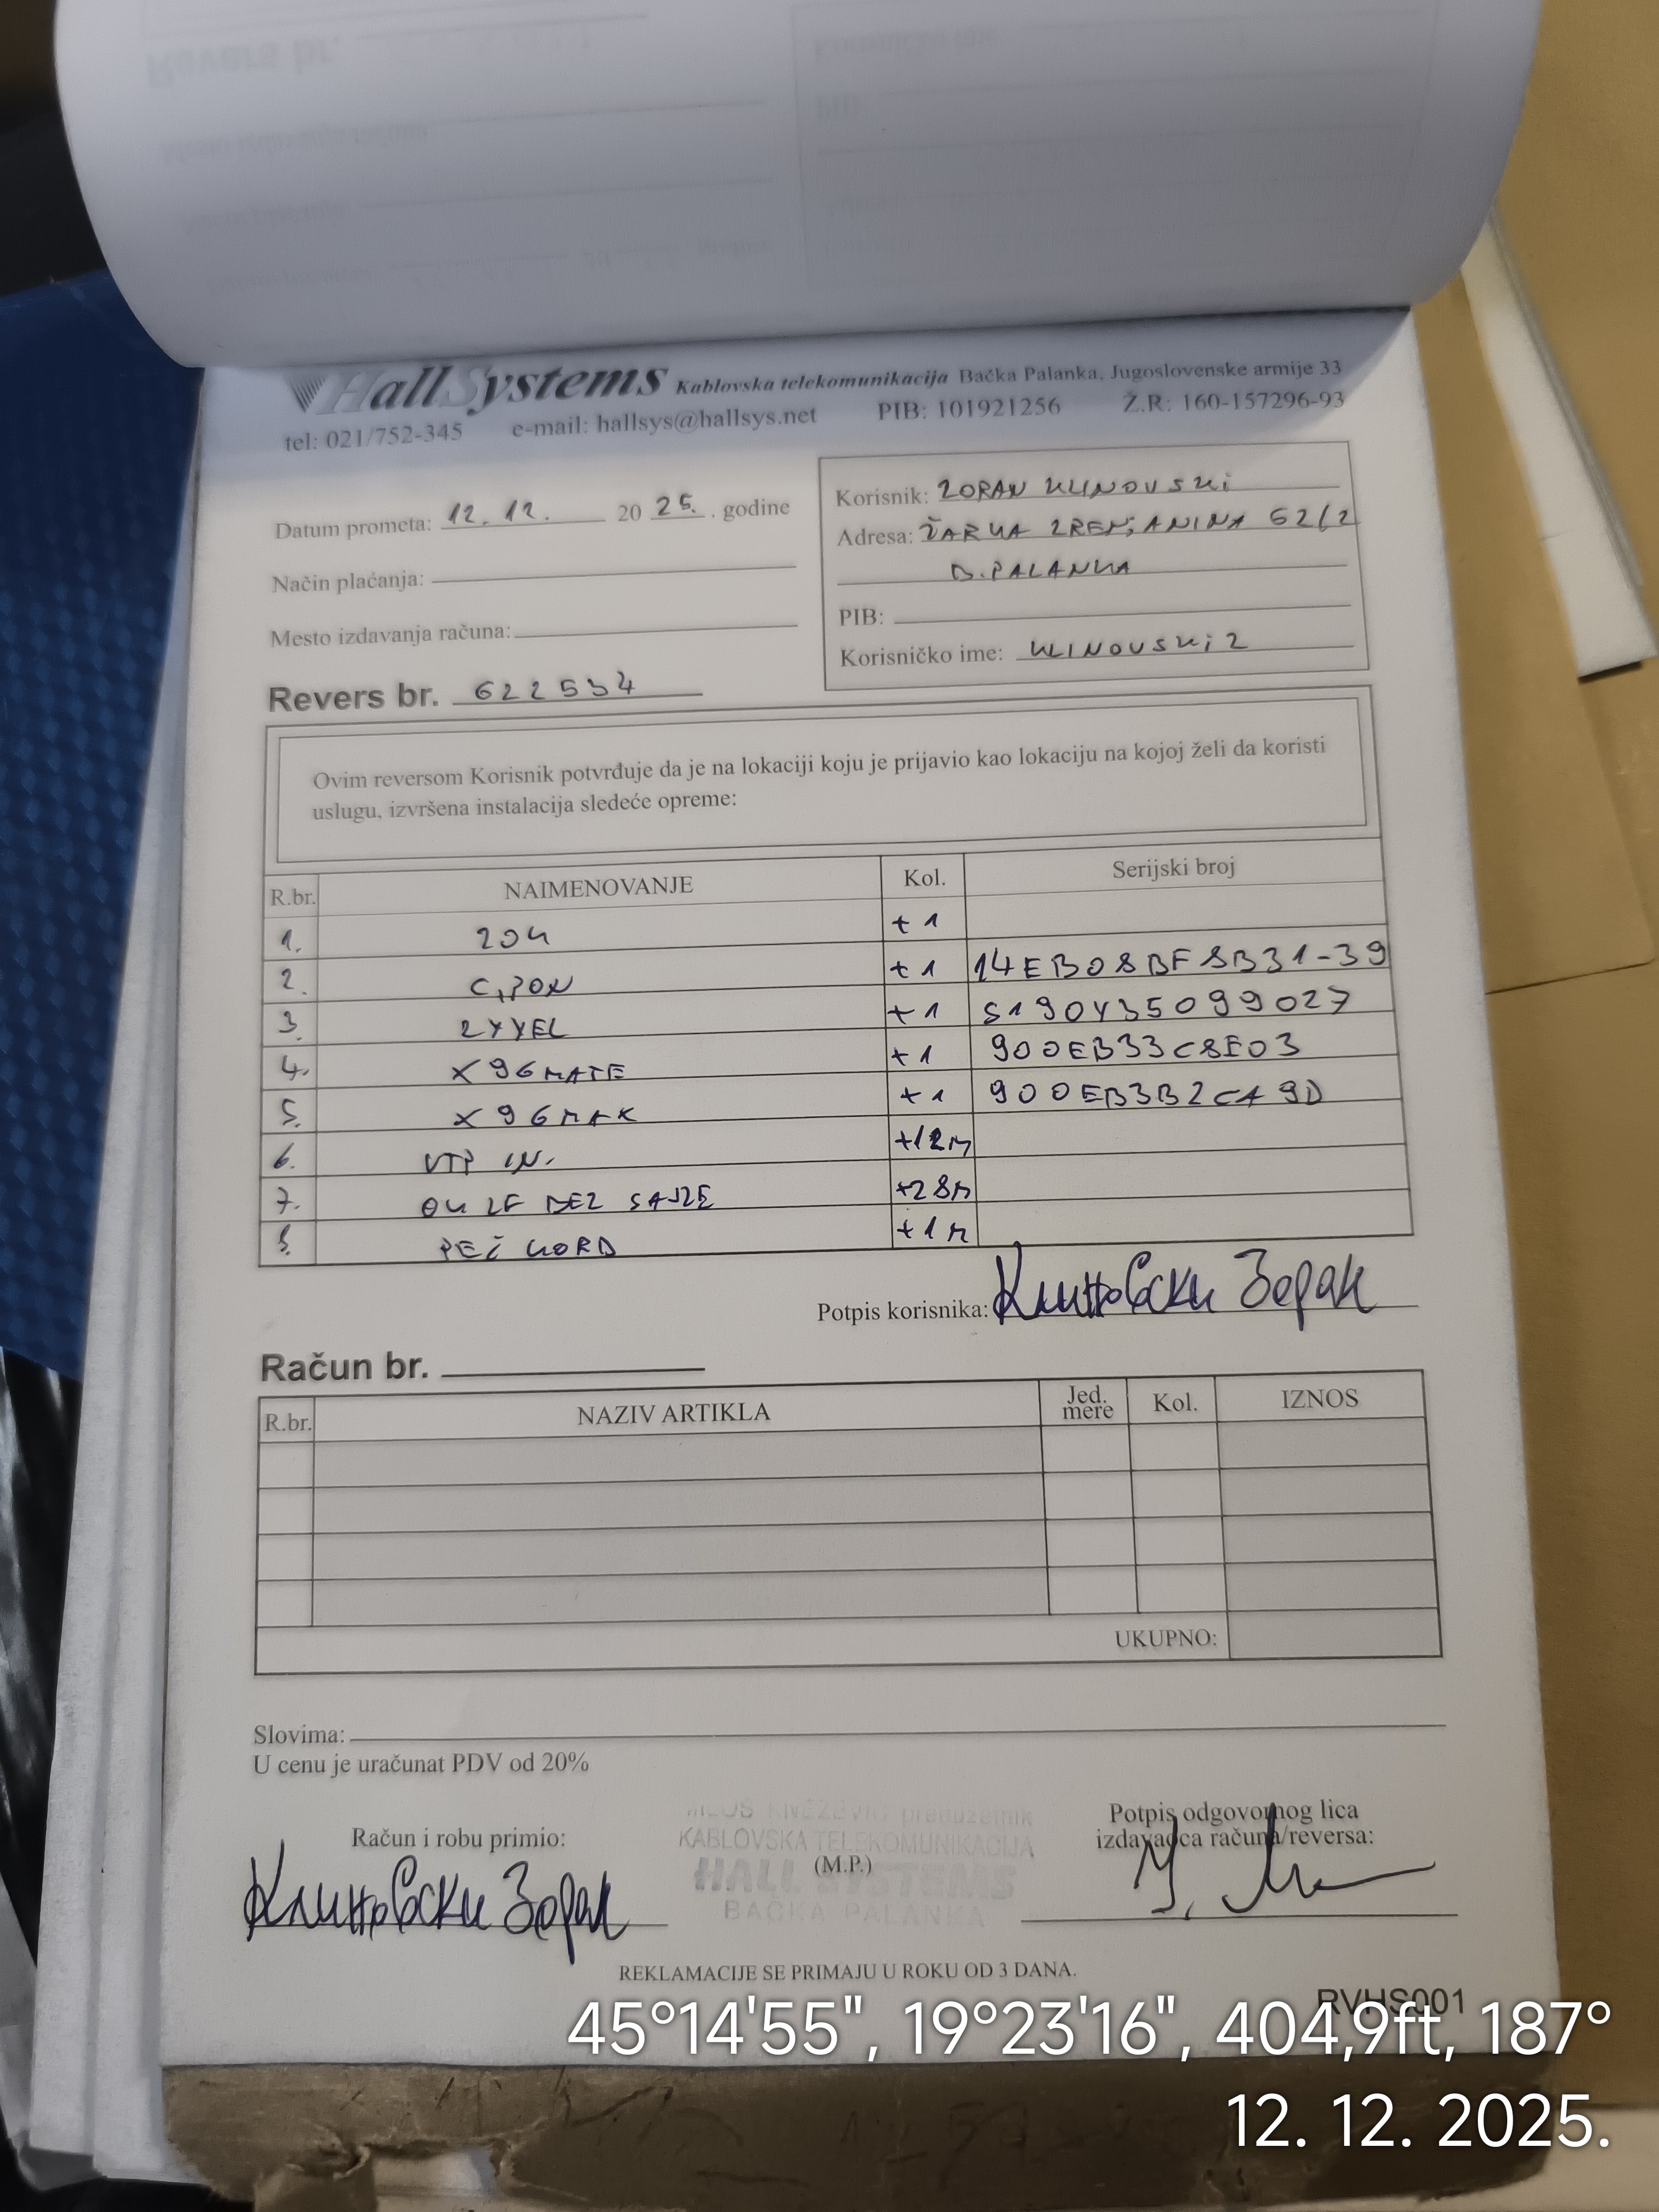 HallSystems Kablovska telekomunikacija Bačka Palanka, Jugoslovenske armije 33
tel: 021/752-345 e-mail: hallsys@hallsys.net PIB: 101921256 Ž.R: 160-157296-93
Datum prometa: 12. 12. 20 25. . godine
Način plaćanja:
Mesto izdavanja računa:
Revers br. 622534
Korisnik: ZORAN KLINOVSKi
Adresa: ŽARKA ZRENjANINA 62/2
B.PALANKA
PIB:
Korisničko ime: KLINOVSKi2
Ovim reversom Korisnik potvrđuje da je na lokaciji koju je prijavio kao lokaciju na kojoj želi da koristi
uslugu, izvršena instalacija sledeće opreme:
R.br. NAIMENOVANJE Kol. Serijski broj
1. ZOK +1
2. GPON +1 14EB08BF8B31-39
3. ZYXEL +1 S190Y35099027
4. X96MATE +1 900EB33C8E03
5. X96MAK +1 900EB3B2CA9D
6. UTP UN. +12m
7. OK 2F BEZ SAJLE +28m
8. PEČ KORD +1
Potpis korisnika: Клиновски Зоран
Račun br.
R.br. NAZIV ARTIKLA Jed. mere Kol. IZNOS
UKUPNO:
Slovima:
U cenu je uračunat PDV od 20%
Račun i robu primio:
Клиновски Зоран
MILOŠ KNEŽEVIĆ preduzetnik
KABLOVSKA TELEKOMUNIKACIJA
(M.P.)
HALL SYSTEMS
BAČKA PALANKA
Potpis odgovornog lica
izdavaoca računa/reversa:
REKLAMACIJE SE PRIMAJU U ROKU OD 3 DANA.
RVHS001
45°14'55", 19°23'16", 404,9ft, 187°
12. 12. 2025.